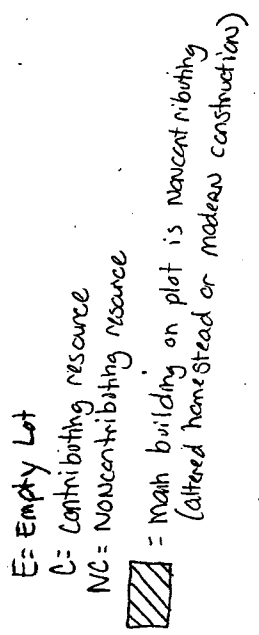 E = Empty Lot
C = Contributing resource
NC = Noncontributing resource
= main building on plot is Noncontributing
(altered homestead or modern construction)